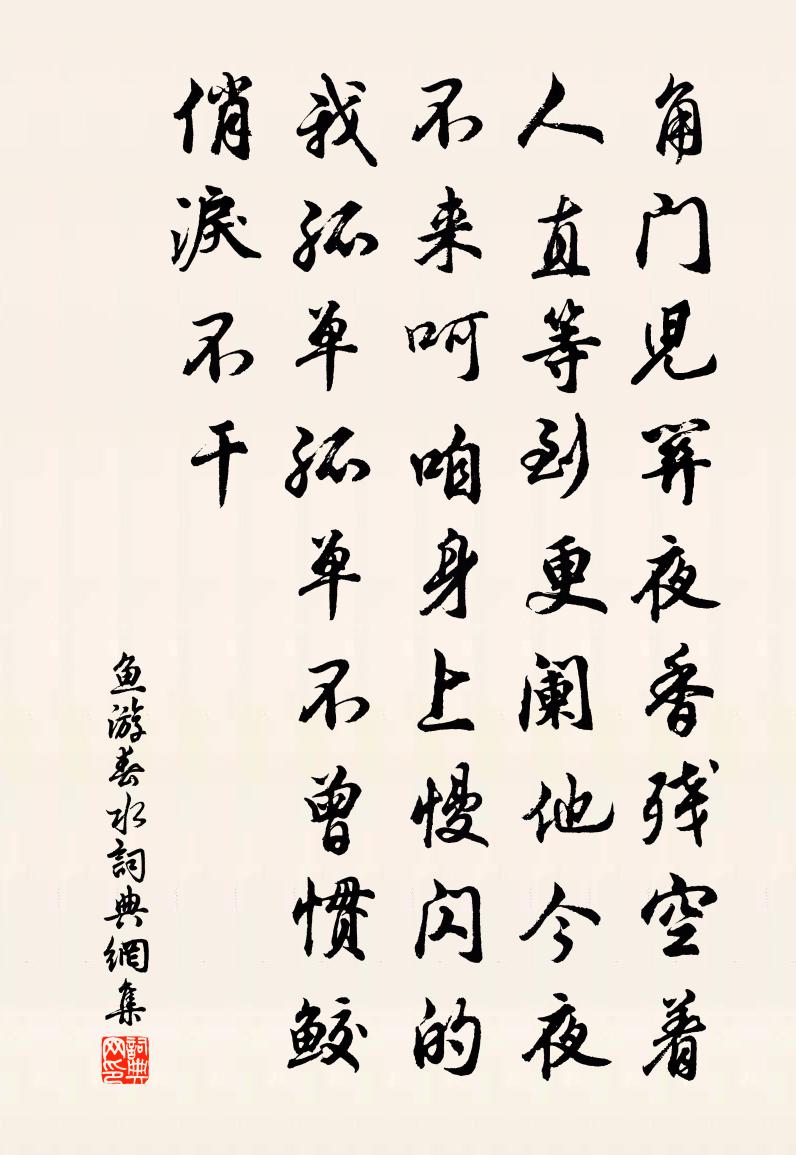 角门児关夜香残空着
人直等到更阑他今夜
不来呵咱身上慢闪的
我孤单孤单不曾惯鲛
俏淚不干
鱼游春水詞典網集
詞典网印